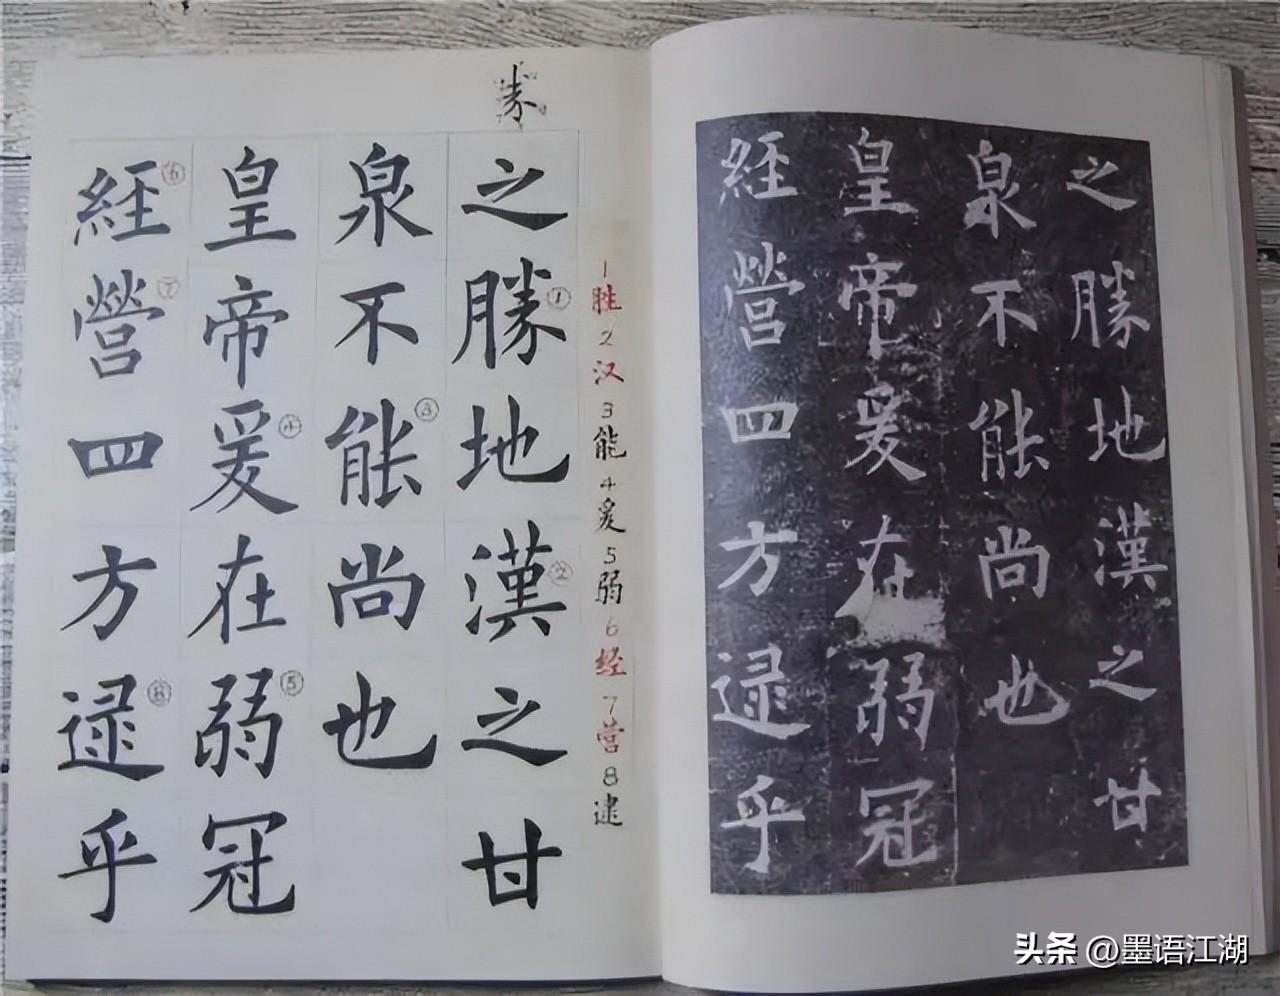 之勝地漢之甘
泉不能尚也
皇帝爰在弱冠
經營四方逮乎
1胜2汉3能4爰5弱6经7营8逮
之勝①地漢②之甘
泉不能③尚也
皇帝爰④在弱⑤冠
經⑥營⑦四方逮⑧乎
头条 @墨语江湖